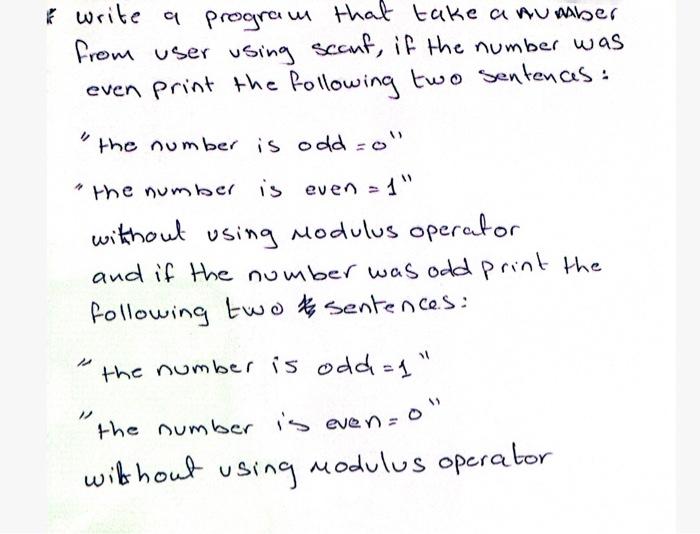 * write a program that take a number
from user using scanf, if the number was
even print the following two sentences:
"the number is odd=0"
"the number is even=1"
without using Modulus operator
and if the number was odd print the
following two sentences:
"the number is odd=1"
"the number is even=0"
without using Modulus operator